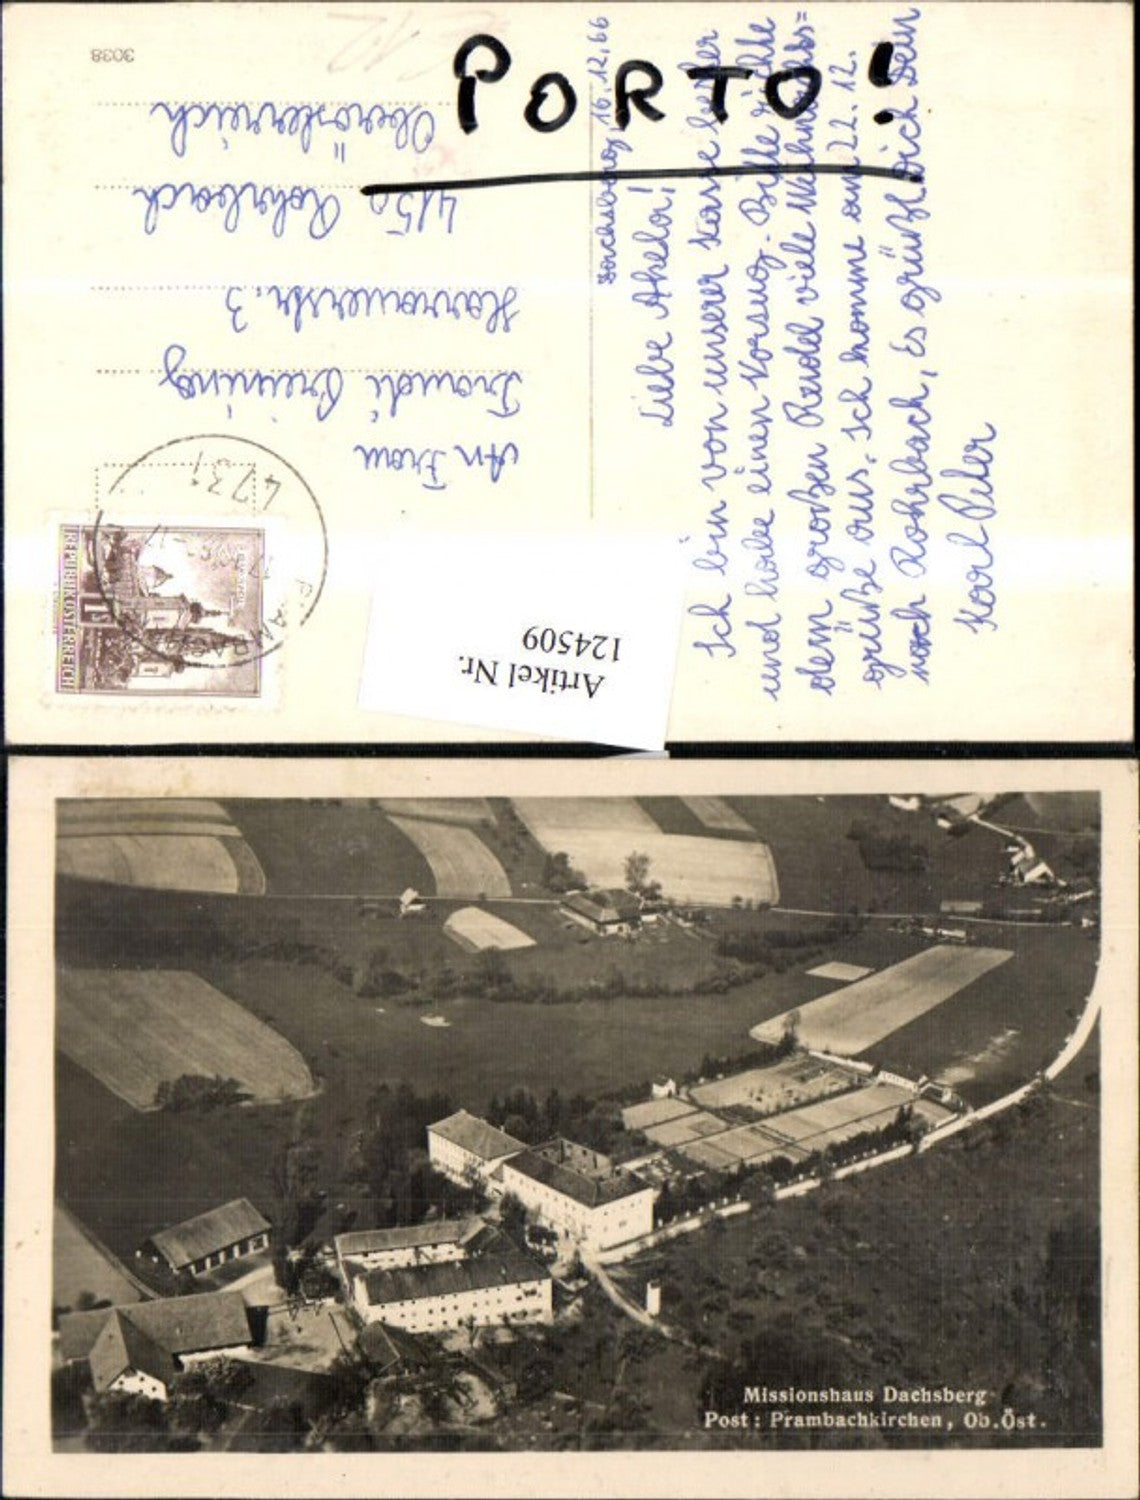 PORTO!
3038
An Frau
Traudi Preining
Harrauerstr. 3
4150 Rohrbach
Oberösterreich
REPUBLIK ÖSTERREICH
1S
4731
Artikel Nr.
124509
Dachsberg, 16.12.66
Liebe Ahelo!
Ich bin von unserer Kasse leether
und habe einen Vorsug. Bitte richte
dem großen Rudol viele Weihnachts=
grüße aus. Ich komme am 22. 12.
nach Rohrbach, Es grüßt Dich Dein
Karl Peter
Missionshaus Dachsberg
Post: Prambachkirchen, Ob.Öst.